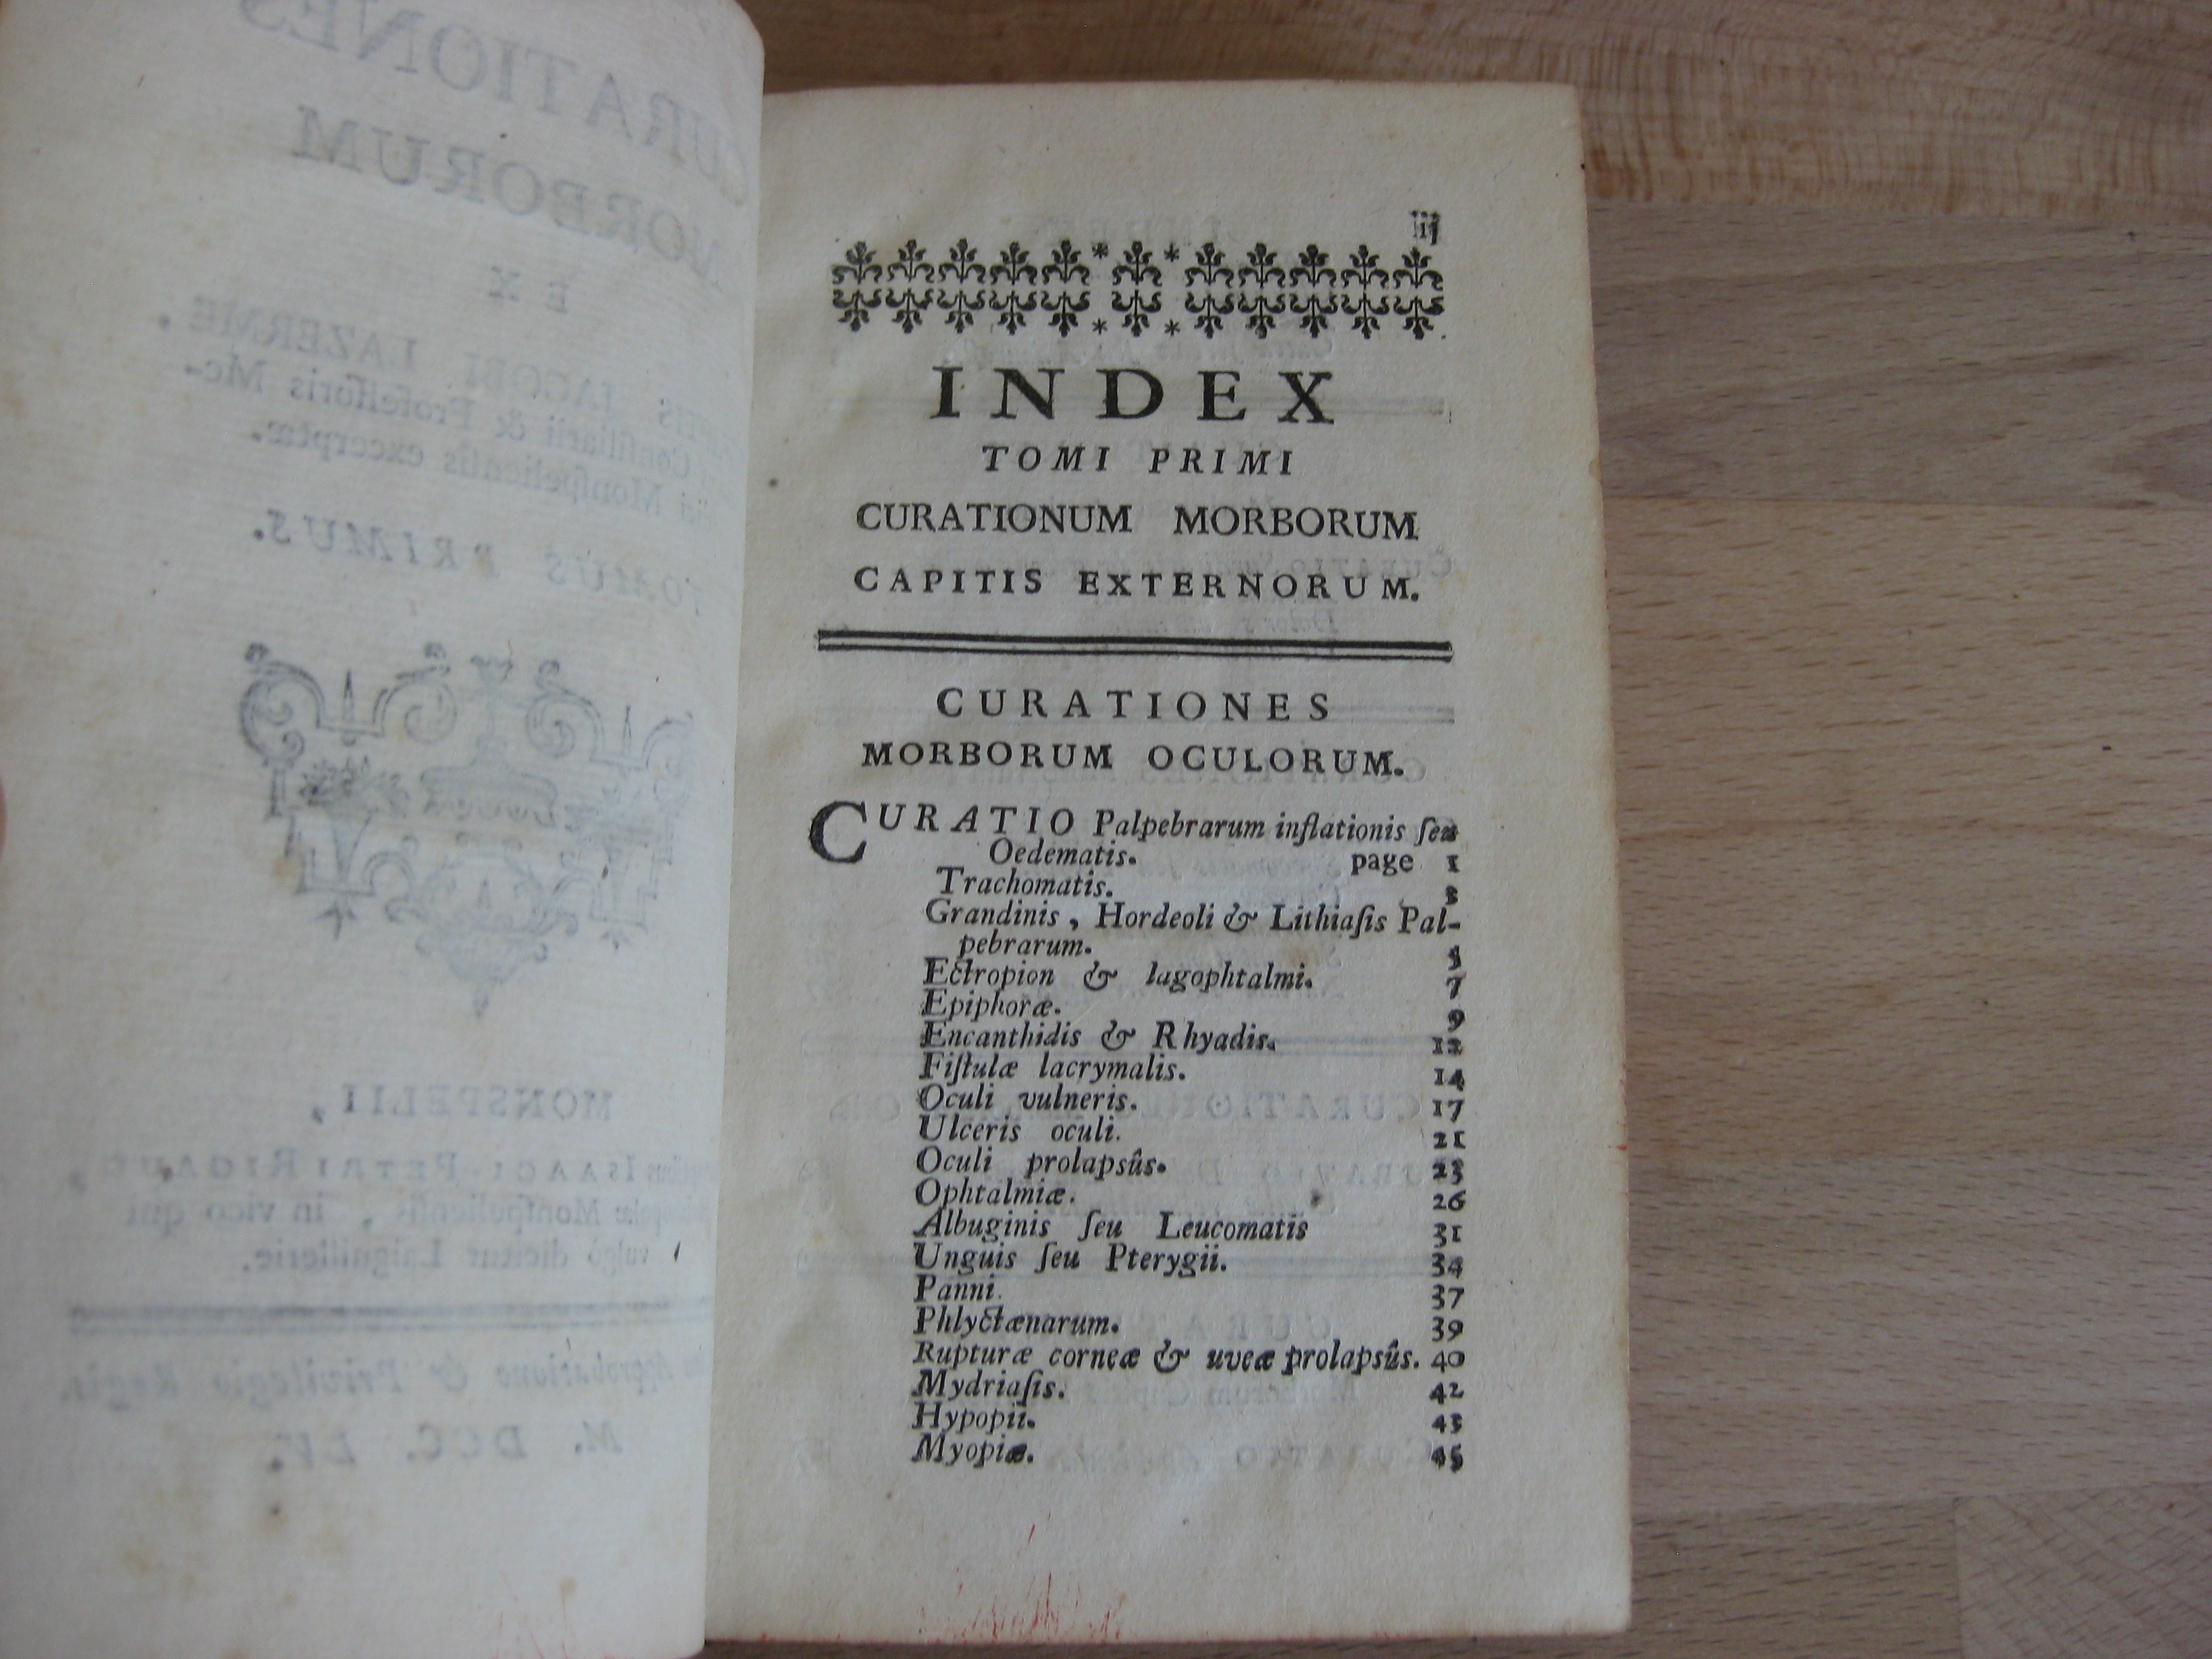 CURATIONES
MORBORUM
EX
JACOBI LAZERME,
Consiliarii & Professoris Me-
Monspeliensis excerptæ.
TOMUS PRIMUS.
MONSPELII,
ISAACI-PETRI RIGAUD,
Monspeliensis, in vico qui
vulgò dicitur Laiguillerie.
Approbatione & Privilegio Regis.
M. DCC. LV.
iij
INDEX
TOMI PRIMI
CURATIONUM MORBORUM
CAPITIS EXTERNORUM.
CURATIONES
MORBORUM OCULORUM.
CURATIO Palpebrarum inflationis ſeu
Oedematis. page 1
Trachomatis. 3
Grandinis, Hordeoli & Lithiaſis Pal-
pebrarum. 5
Ectropion & lagophtalmi. 7
Epiphoræ. 9
Encanthidis & Rhyadis. 12
Fiſtulæ lacrymalis. 14
Oculi vulneris. 17
Ulceris oculi. 21
Oculi prolapsûs. 23
Ophtalmiæ. 26
Albuginis ſeu Leucomatis 31
Unguis ſeu Pterygii. 34
Panni. 37
Phlyctænarum. 39
Rupturæ corneæ & uveæ prolapsûs. 40
Mydriaſis. 42
Hypopii. 43
Myopiæ. 45